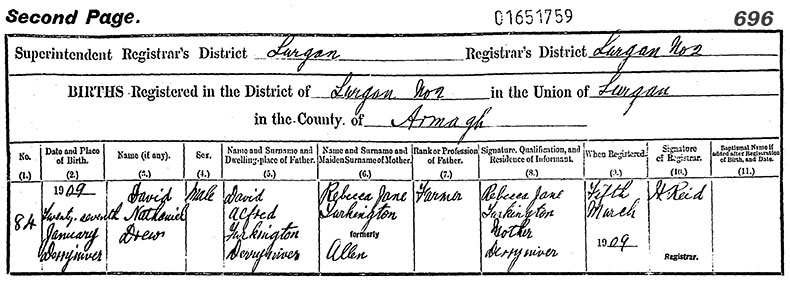 Second Page. 01651759 696
Superintendent Registrar's District Lurgan Registrar's District Lurgan No 2
BIRTHS Registered in the District of Lurgan No 2 in the Union of Lurgan
in the County of Armagh
No. Date and Place of Birth. Name (if any). Sex. Name and Surname and Dwelling-place of Father. Name and Surname and Maiden Surname of Mother. Rank or Profession of Father. Signature, Qualification, and Residence of Informant. When Registered. Signature of Registrar. Baptismal Name if added after Registration of Birth, and Date.
(1.) (2.) (3.) (4.) (5.) (6.) (7.) (8.) (9.) (10.) (11.)
1909 David Male David Rebecca Jane Farmer Rebecca Jane Fifth H Reid
84 Twenty-seventh Nathaniel Alfred Turkington Turkington March
January Drew Turkington formerly Mother
Derryinver Derryinver Allen Derryinver 1909 Registrar.